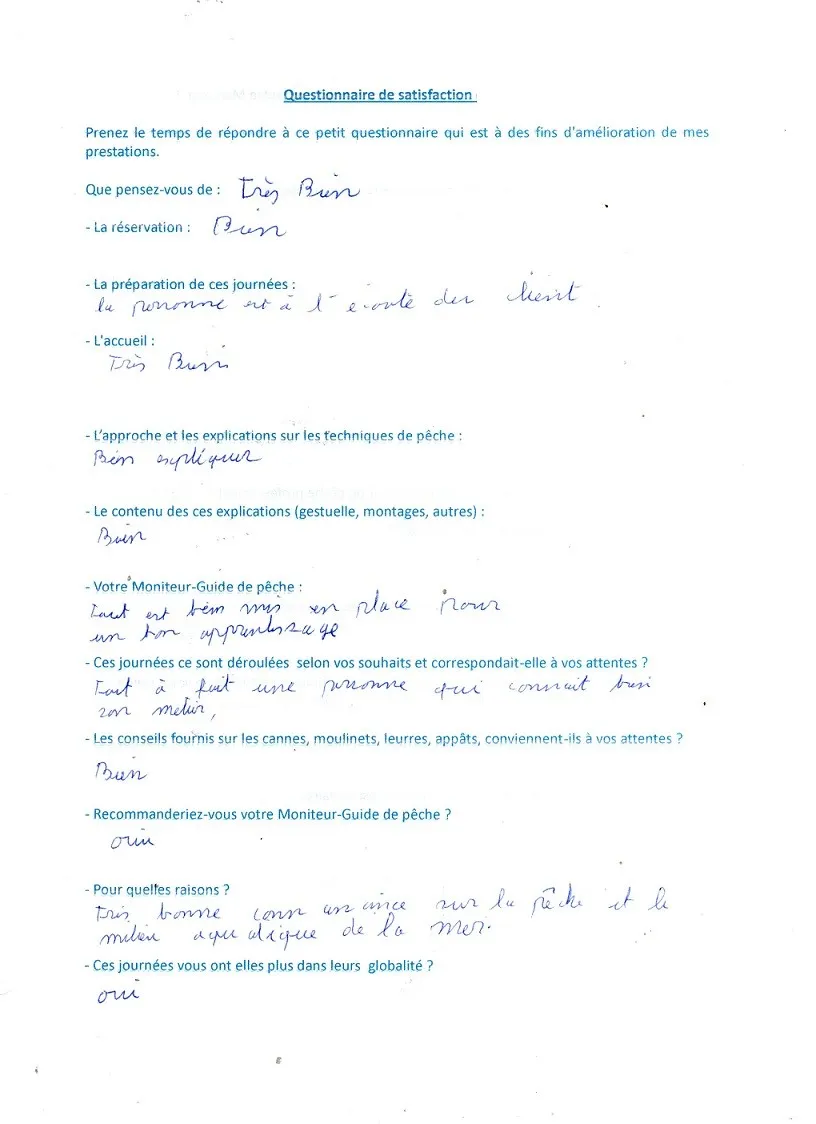 Questionnaire de satisfaction
Prenez le temps de répondre à ce petit questionnaire qui est à des fins d'amélioration de mes
prestations.
Que pensez-vous de : Très Bien
- La réservation : Bien
- La préparation de ces journées :
la personne est à l'ecoute des client
- L'accueil :
Très Bien
- L'approche et les explications sur les techniques de pêche :
Bien expliquer
- Le contenu des ces explications (gestuelle, montages, autres) :
Bien
- Votre Moniteur-Guide de pêche :
Tout est bien mis en place pour
un bon apprentissage
- Ces journées ce sont déroulées selon vos souhaits et correspondait-elle à vos attentes ?
Tout à fait une personne qui connait bien
son metier,
- Les conseils fournis sur les cannes, moulinets, leurres, appâts, conviennent-ils à vos attentes ?
Bien
- Recommanderiez-vous votre Moniteur-Guide de pêche ?
oui
- Pour quelles raisons ?
Très bonne sur la pêche et le
milieu aquatique de la mer.
- Ces journées vous ont elles plus dans leurs globalité ?
oui